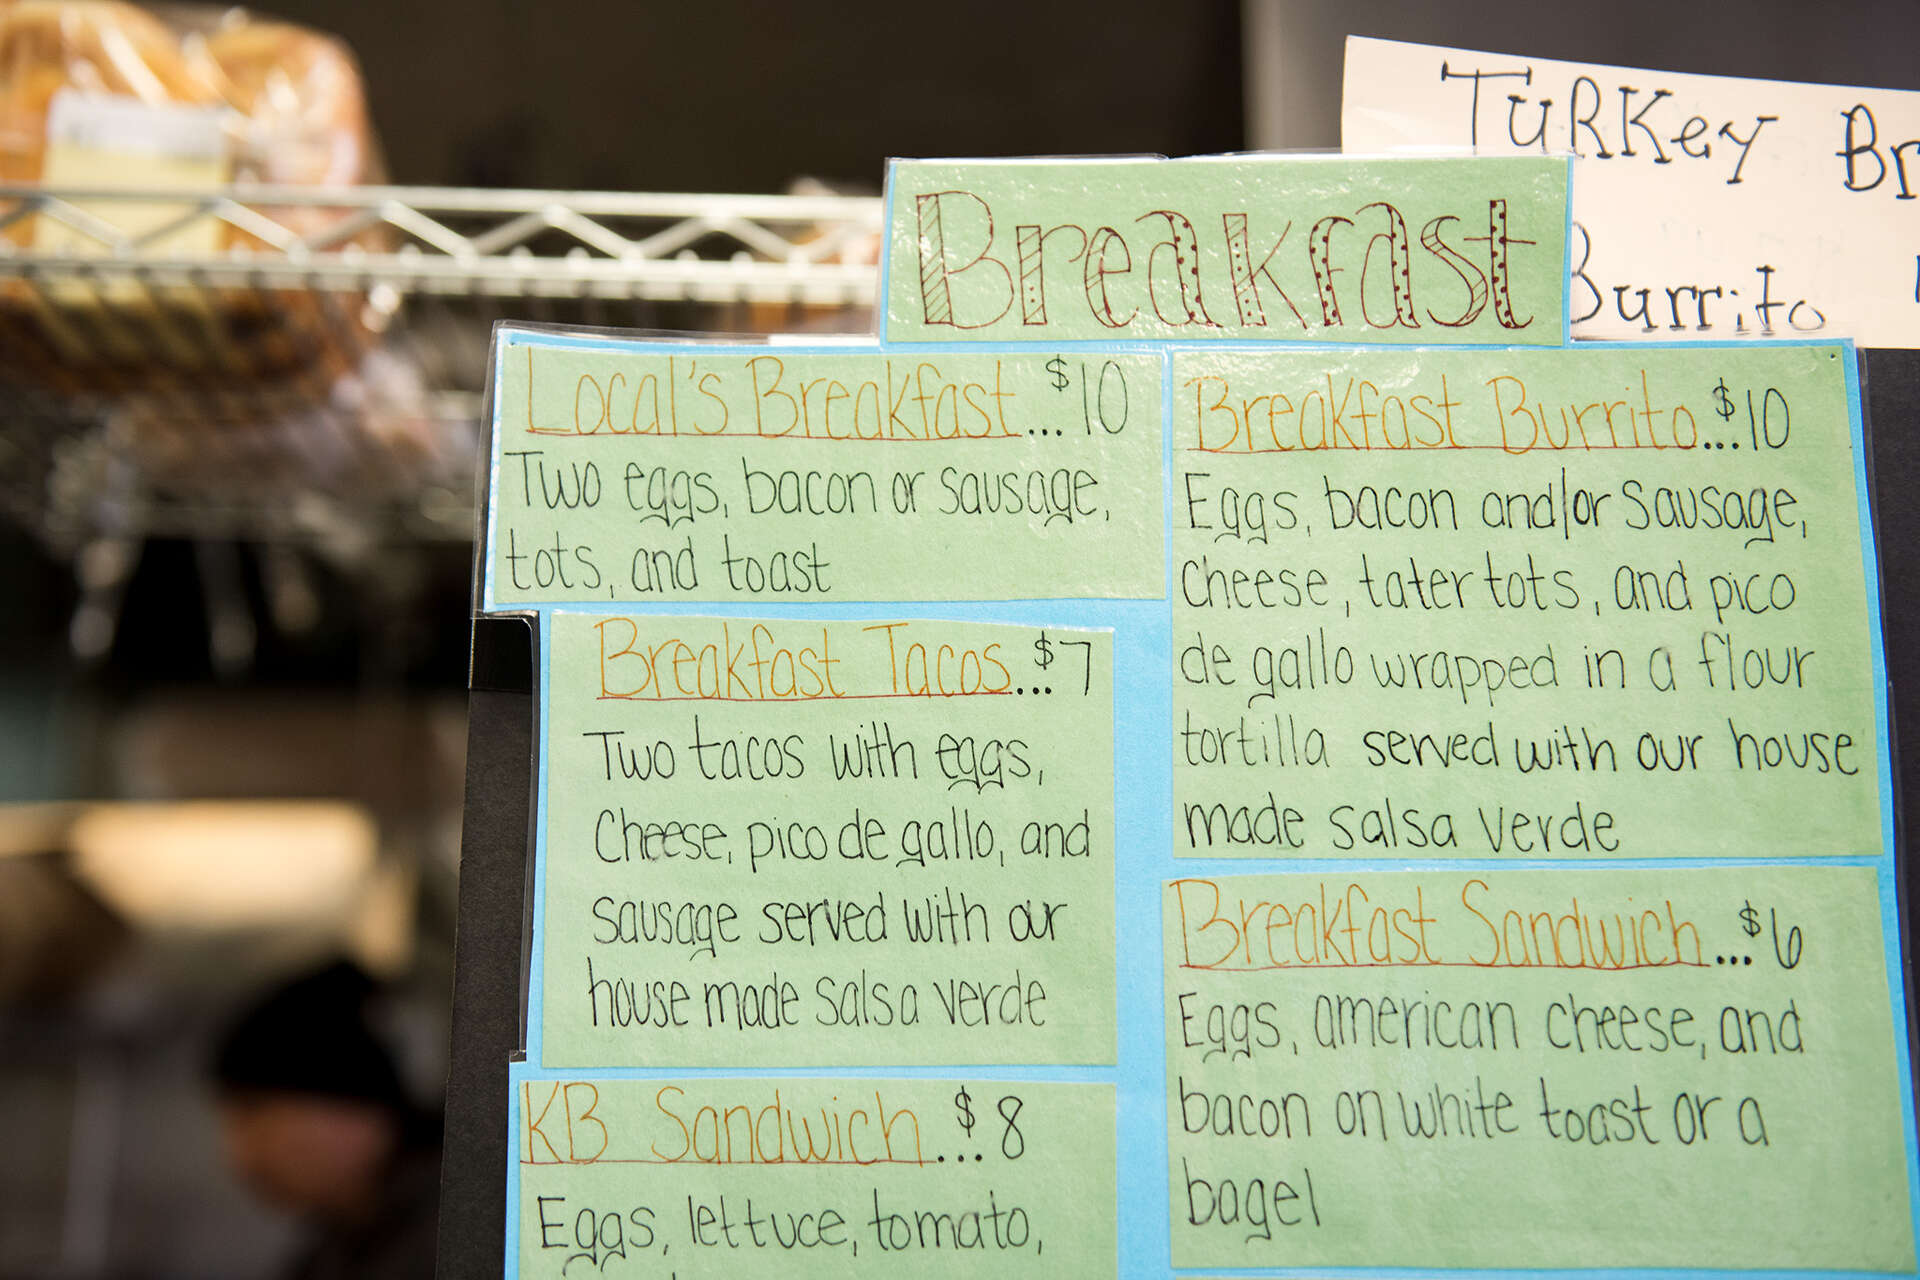 Turkey
Burrito
Breakfast
Local's Breakfast...$10
Two eggs, bacon or sausage,
tots, and toast
Breakfast Tacos...$7
Two tacos with eggs,
Cheese, pico de gallo, and
sausage served with our
house made salsa verde
KB Sandwich...$8
Eggs, lettuce, tomato,
Breakfast Burrito...$10
Eggs, bacon and/or sausage,
cheese, tater tots, and pico
de gallo wrapped in a flour
tortilla served with our house
made salsa verde
Breakfast Sandwich...$6
Eggs, american cheese, and
bacon on white toast or a
bagel